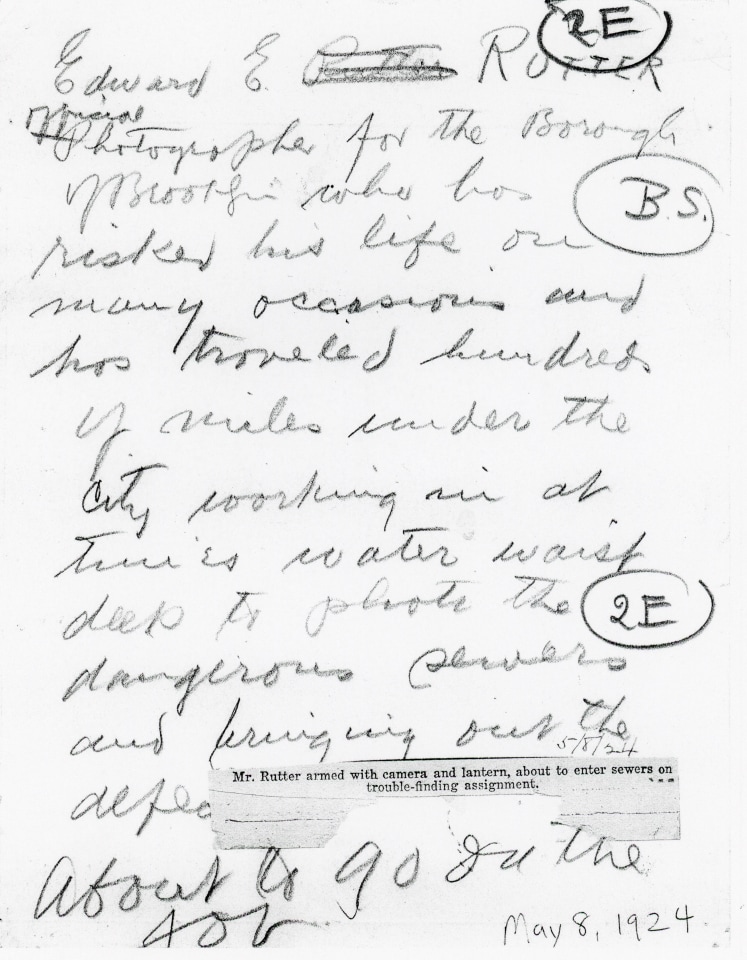 2E
Edward E. RUTTER
official
Photographer for the Borough
of Brooklyn who has
B.S.
risked his life on
many occasions and
has traveled hundreds
of miles under the
city working in at
times water waist
deep to photo the
2E
dangerous sewers
and bringing out the
5/8/24
defec
Mr. Rutter armed with camera and lantern, about to enter sewers on
trouble-finding assignment.
About to go on the
job
May 8, 1924